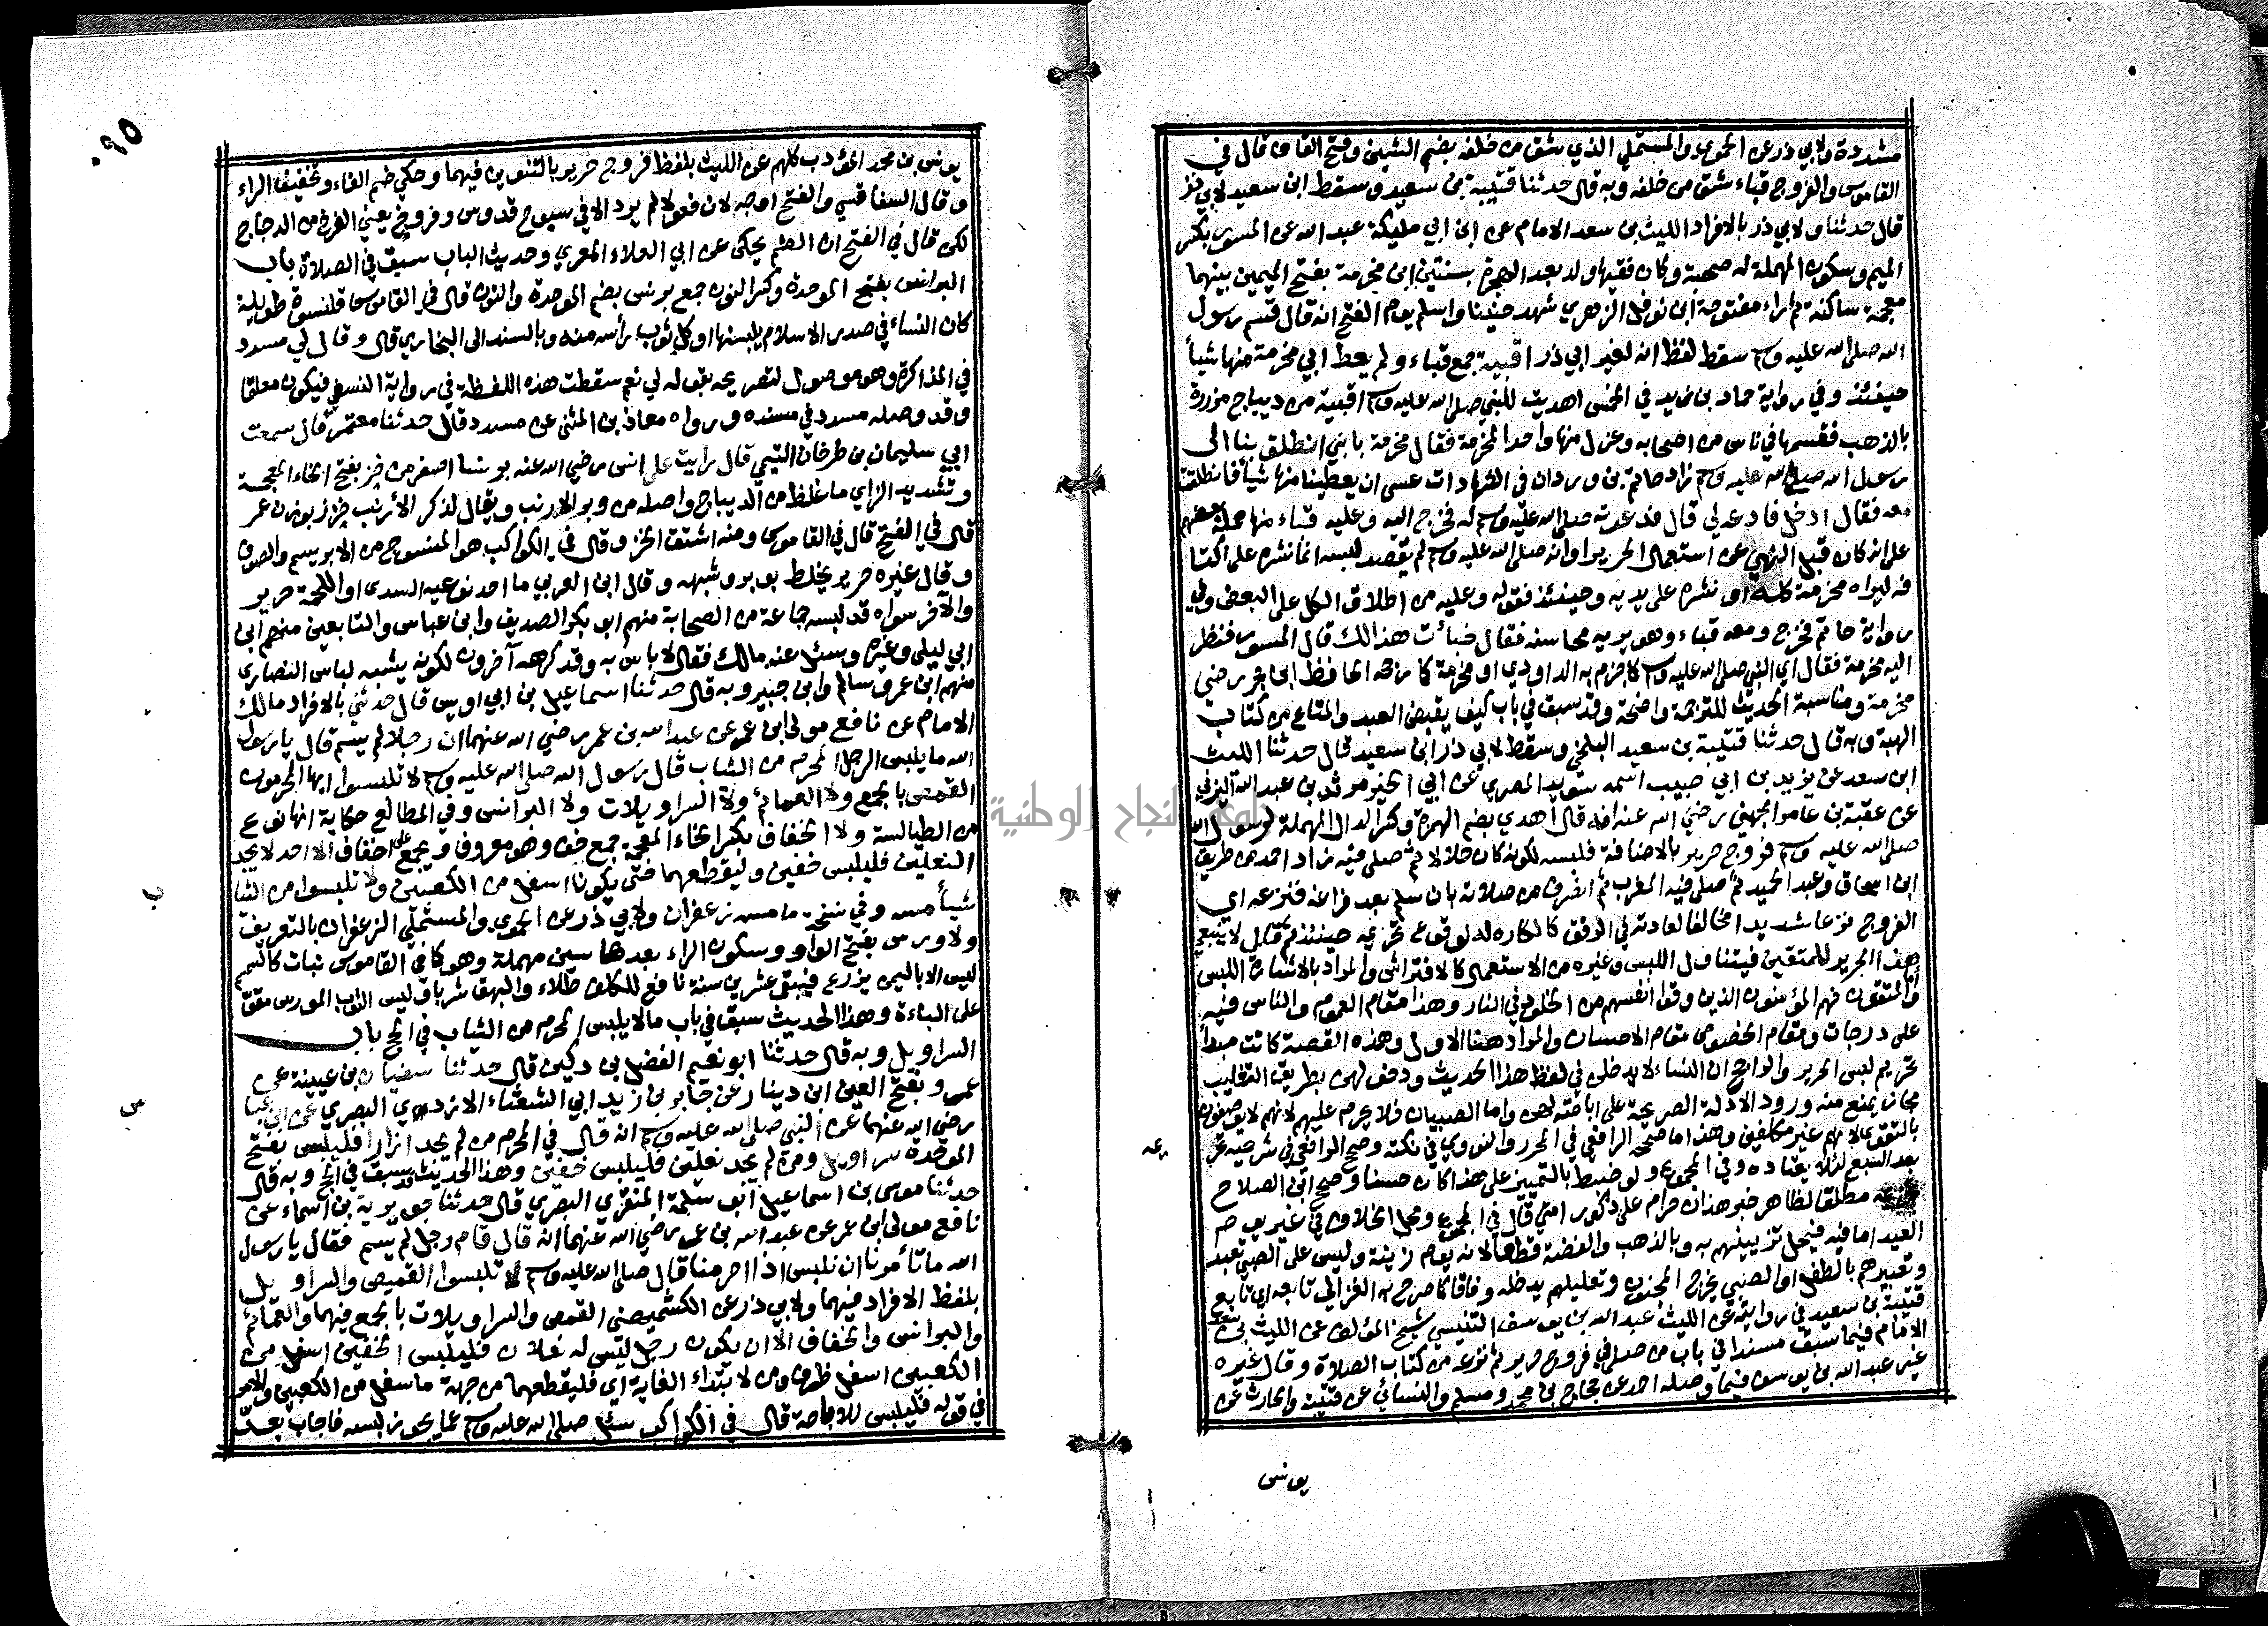 مشددة ولابي ذر عن الحموي والمستملي الذي شق من خلفه بضم الشين وفتح القاف قال في
القاموس والفروج قباء شق من خلفه وبه قال حدثنا قتيبة بن سعيد وسقط ابن سعيد لابي ذر
قال حدثنا ولابي ذر بالافراد الليث بن سعد الامام عن ابن ابي مليكة عبد الله عن المسور بكسر
الميم وسكون المهملة له صحبة وكان فقيها ولد بعد الهجرة بسنتين ابن مخرمة بفتح الميمين بينهما
معجمة ساكنة ثم راء مفتوحة ابن نوفل الزهري شهد حنينا واسلم يوم الفتح انه قال قسم رسول
الله صلى الله عليه وسلم سقط لفظ انه لغير ابي ذر اقبية جمع قباء ولم يعط ابي مخرمة منها شيأ
حينئذ وفي رواية حماد بن زيد في الخمس اهديت للنبي صلى الله عليه وسلم اقبية من ديباج مزررة
بالذهب فقسمها في ناس من اصحابه وعزل منها واحدا لمخرمة فقال مخرمة يا بني انطلق بنا الى
رسول الله صلى الله عليه وسلم زاد حاتم بن وردان في الشهادات عسى ان يعطينا منها شيأ فانطلقت
معه فقال ادخل فادعه لي قال فدعوته صلى الله عليه وسلم له فخرج اليه وعليه قباء منها حمله بعضهم
على انه كان قبل النهي عن استعمال الحرير او انه صلى الله عليه وسلم لم يقصد لبسه انما نشره على اكتا
فه ليراه مخرمة كله او نشره على يديه وحينئذ فقوله وعليه من اطلاق الكل على البعض وفي
رواية حاتم فخرج ومعه قباء وهو يريه محاسنه فقال خبأت هذا لك قال المسور فنظر
اليه مخرمة فقال اي النبي صلى الله عليه وسلم كما جزم به الداودي او مخرمة كما رجحه الحافظ ابن حجر رضي
مخرمة ومناسبة الحديث للترجمة واضحة وقد سبق في باب كيف يقبض العبد والمتاع من كتاب
الهبة وبه قال حدثنا قتيبة بن سعيد البلخي وسقط لابي ذر ابن سعيد قال حدثنا الليث
ابن سعد عن يزيد بن ابي حبيب اسمه سويد المصري عن ابي الخير مرثد بن عبد الله اليزني
عن عقبة بن عامر الجهني رضي الله عنه انه قال أهدي بضم الهمزة وكسر الدال المهملة لرسول الله
صلى الله عليه وسلم فروج حرير بالاضافة فلبسه لكونه كان حلالا ثم صلى فيه زاد احمد من طريق
ابن اسحاق وعبد الحميد ثم صلى فيه المغرب ثم انصرف من صلاته بان سلم بعد فراغه فنزعه اي
الفروج نزعا شديدا مخالفا لعادته في الرفق كالكاره له لوقوع تحريمه حينئذ ثم قال لا ينبغي
هذا الحرير للمتقين فيتناول اللبس وغيره من الاستعمال كالافتراش والمراد بالاشارة اللبس
والمتقون فهم المؤمنون الذين وقوا انفسهم من الخلود في النار وهذا مقام العموم والناس فيه
على درجات ومقام الخصوص مقام الاحسان والمراد هنا الاول وهذه القصة كانت مبدأ
تحريم لبس الحرير والراجح ان النساء لا يدخلن في لفظ هذا الحديث ودخولهن بطريق التغليب
مجاز يمنع منه ورود الادلة الصريحة على اباحته لهن واما الصبيان فلا يحرم عليهم لانهم لا يوصفون
بالتقوى لانهم غير مكلفين وهذا ما صححه الرافعي في المحرر والنووي في نكته وصحح الرافعي في شرحيه تحر
يمه بعد السبع لئلا يعتاده وفي المجموع ولو ضبط بالتمييز على هذا كان حسنا وصحح ابن الصلاح
مطلقا لظاهر خبر هذان حرام على ذكور امتي قال في المجموع ومحل الخلاف في غير يوم
العيد اما فيه فيحل تزيينهم به وبالذهب والفضة قطعا لانه يوم زينة وليس على الصبي تعبد
وتعبيرهم بالطفل او الصبي يخرج المجنون وتعليلهم يدخله وفاقا كما صرح به الغزالي تابعه اي تابع
قتيبة بن سعيد في روايته عن الليث عبد الله بن يوسف التنيسي شيخ المؤلف عن الليث بن سعد
الامام فيما سبق مسندا في باب من صلى في فروج حرير ثم نزعه من كتاب الصلاة وقال غيره
غير عبد الله بن يوسف فيما وصله احمد عن حجاج بن محمد ومسلم والنسائي عن قتيبة والحارث عن
يونس
٩٥
يونس بن محمد المؤدب كلهم عن الليث بلفظ فروج حرير بالتنوين فيهما وحكي ضم الفاء وتخفيف الراء
وقال السفاقسي والفتح اوجه لان فعولا لم يرد الا في سبوح قدوس وفروخ يعني الفرخ من الدجاج
لكن قال في الفتح ان الضم يحكى عن ابي العلاء المعري وحديث الباب سبق في الصلاة باب
البرانس بفتح الموحدة وكسر النون جمع برنس بضم الموحدة والنون قال في القاموس قلنسوة طويلة
كان النساء في صدر الاسلام يلبسنها او كل ثوب رأسه منه وبالسند الى البخاري قال وقال لي مسدد
في المذاكرة وهو موصول لتصريحه بقوله لي نعم سقطت هذه اللفظة في رواية النسفي فيكون معلقا
وقد وصله مسدد في مسنده ورواه معاذ بن المثنى عن مسدد قال حدثنا معتمر قال سمعت
ابي سليمان بن طرخان التيمي قال رايت على انس رضي الله عنه برنسا اصفر من خز بفتح الخاء المعجمة
وتشديد الزاي ما غلظ من الديباج واصله من وبر الارنب ويقال لذكر الأرنب خزز بوزن عمر
قال في الفتح قال في القاموس ومنه اشتق الخز وقال في الكواكب هو المنسوج من الابريسم والصوف
وقال غيره حرير يخلط بوبر وشبهه وقال ابن العربي ما احد نوعيه السدى او اللحمة حرير
والآخر سواه قد لبسه جماعة من الصحابة منهم ابو بكر الصديق وابن عباس والتابعين منهم ابن
ابي ليلى وغيره وسئل عنه مالك فقال لا باس به وقد كرهه آخرون لكونه يشبه لباس النصارى
منهم ابن عمر وسالم وابن جبير وبه قال حدثنا اسماعيل بن ابي اويس قال حدثني بالافراد مالك
الامام عن نافع مولى ابن عمر عن عبد الله بن عمر رضي الله عنهما ان رجلا لم يسم قال يا رسول
الله ما يلبس الرجل المحرم من الثياب قال رسول الله صلى الله عليه وسلم لا تلبسوا ايها المحرمون
القمص بالجمع ولا العمائم ولا السراويلات ولا البرانس وفي المطالع حكاية انها نوع
من الطيالسة ولا الخفاف بكسر الخاء المعجمة جمع خف وهو معروف ويجمع على اخفاف الا احد لا يجد
النعلين فليلبس خفين وليقطعهما حتى يكونا اسفل من الكعبين ولا تلبسوا من الثيا
شيأ مسه وفي نسخة ما مسه زعفران ولابي ذر عن الحموي والمستملي الزعفران بالتعريف
ولا ورس بفتح الواو وسكون الراء بعدها سين مهملة وهو كما في القاموس نبات كالسمسم
ليس الا باليمن يزرع فيبقى عشرين سنة نافع للكلف طلاء والبهق شربا ولبس الثوب المورس مقو
على الباءة وهذا الحديث سبق في باب ما لا يلبس المحرم من الثياب في الحج باب
السراويل وبه قال حدثنا ابو نعيم الفضل بن دكين قال حدثنا سفيان بن عيينة عن
عمرو بفتح العين ابن دينار عن جابر بن زيد ابي الشعثاء الازدي البصري عن ابن عباس
رضي الله عنهما عن النبي صلى الله عليه وسلم انه قال في المحرم من لم يجد ازارا فليلبس بفتح
الموحدة سراويل ومن لم يجد نعلين فليلبس خفين وهذا الحديث قد سبق في الحج وبه قال
حدثنا موسى بن اسماعيل ابو سلمة المنقري البصري قال حدثنا جويرية بن اسماء عن
نافع مولى ابن عمر عن عبد الله بن عمر رضي الله عنهما انه قال قام رجل لم يسم فقال يا رسول
الله ما تأمرنا ان نلبس اذا احرمنا قال صلى الله عليه وسلم لا تلبسوا القميص والسراويل
بلفظ الافراد فيهما ولابي ذر عن الكشميهني القمص والسراويلات بالجمع فيهما والعمائم
والبرانس والخفاف الا ان يكون رجل ليس له نعلان فليلبس الخفين اسفل من
الكعبين اسفل ظرف ومن لابتداء الغاية اي فليقطعهما من جهة ما سفل من الكعبين والامر
في قوله فليلبس للاباحة قال في الكواكب سئل صلى الله عليه وسلم عما يجوز لبسه فاجاب بعد